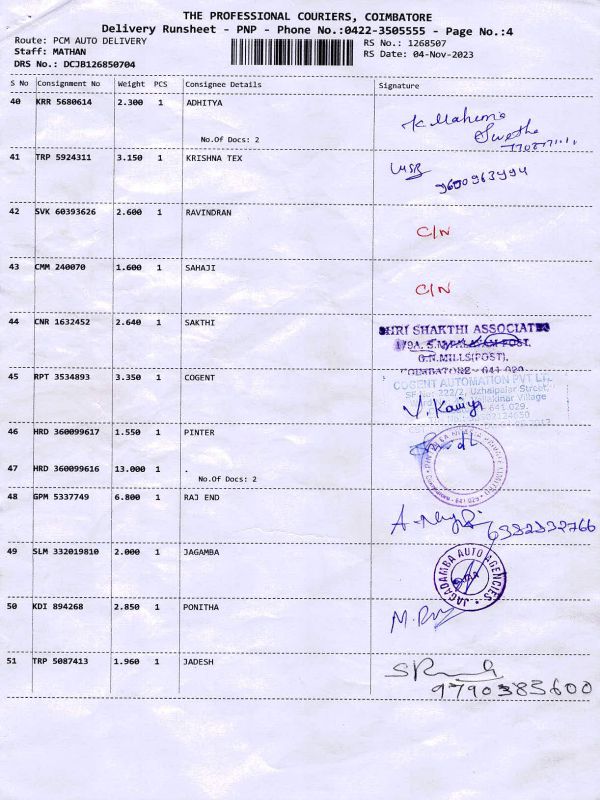 THE PROFESSIONAL COURIERS, COIMBATORE
Delivery Runsheet - PNP - Phone No.:0422-3505555 - Page No.:4
Route: PCM AUTO DELIVERY
RS No.: 1268507
Staff: MATHAN
RS Date: 04-Nov-2023
DRS No.: DCJB126850704
S No Consignment No Weight PCS Consignee Details Signature
40 KRR 5680614 2.300 1 ADHITYA
No.Of Docs: 2
41 TRP 5924311 3.150 1 KRISHNA TEX
9600963494
42 SVK 60393626 2.600 1 RAVINDRAN
C/N
43 CMM 240070 1.600 1 SAHAJI
C/N
44 CNR 1632452 2.640 1 SAKTHI
SHRI SHAKTHI ASSOCIATES
G.N.MILLS(POST).
COIMBATORE - 641 029
45 RPT 3534893 3.350 1 COGENT
COGENT AUTOMATION PVT LTD
SF No. 322/2, Uzhaipalar Street
Vellakinar Village
641 029.
46 HRD 360099617 1.550 1 PINTER
47 HRD 360099616 13.000 1 .
No.Of Docs: 2
48 GPM 5337749 6.800 1 RAJ END
6382332766
49 SLM 332019810 2.000 1 JAGAMBA
JAGADAMBA AUTO AGENCIES
50 KDI 894268 2.850 1 PONITHA
51 TRP 5087413 1.960 1 JADESH
9790383600